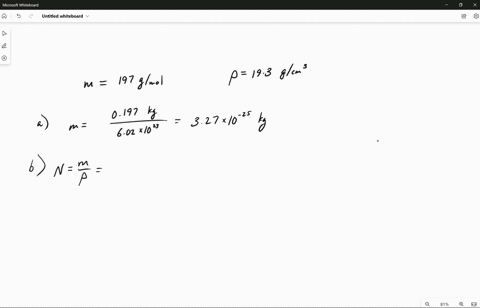 Microsoft Whiteboard
Untitled whiteboard
m = 197 g/mol
ρ = 19.3 g/cm³
a) m = 0.197 kg / 6.02 × 10²³ = 3.27 × 10⁻²⁵ kg
b) N = m/ρ =
81%